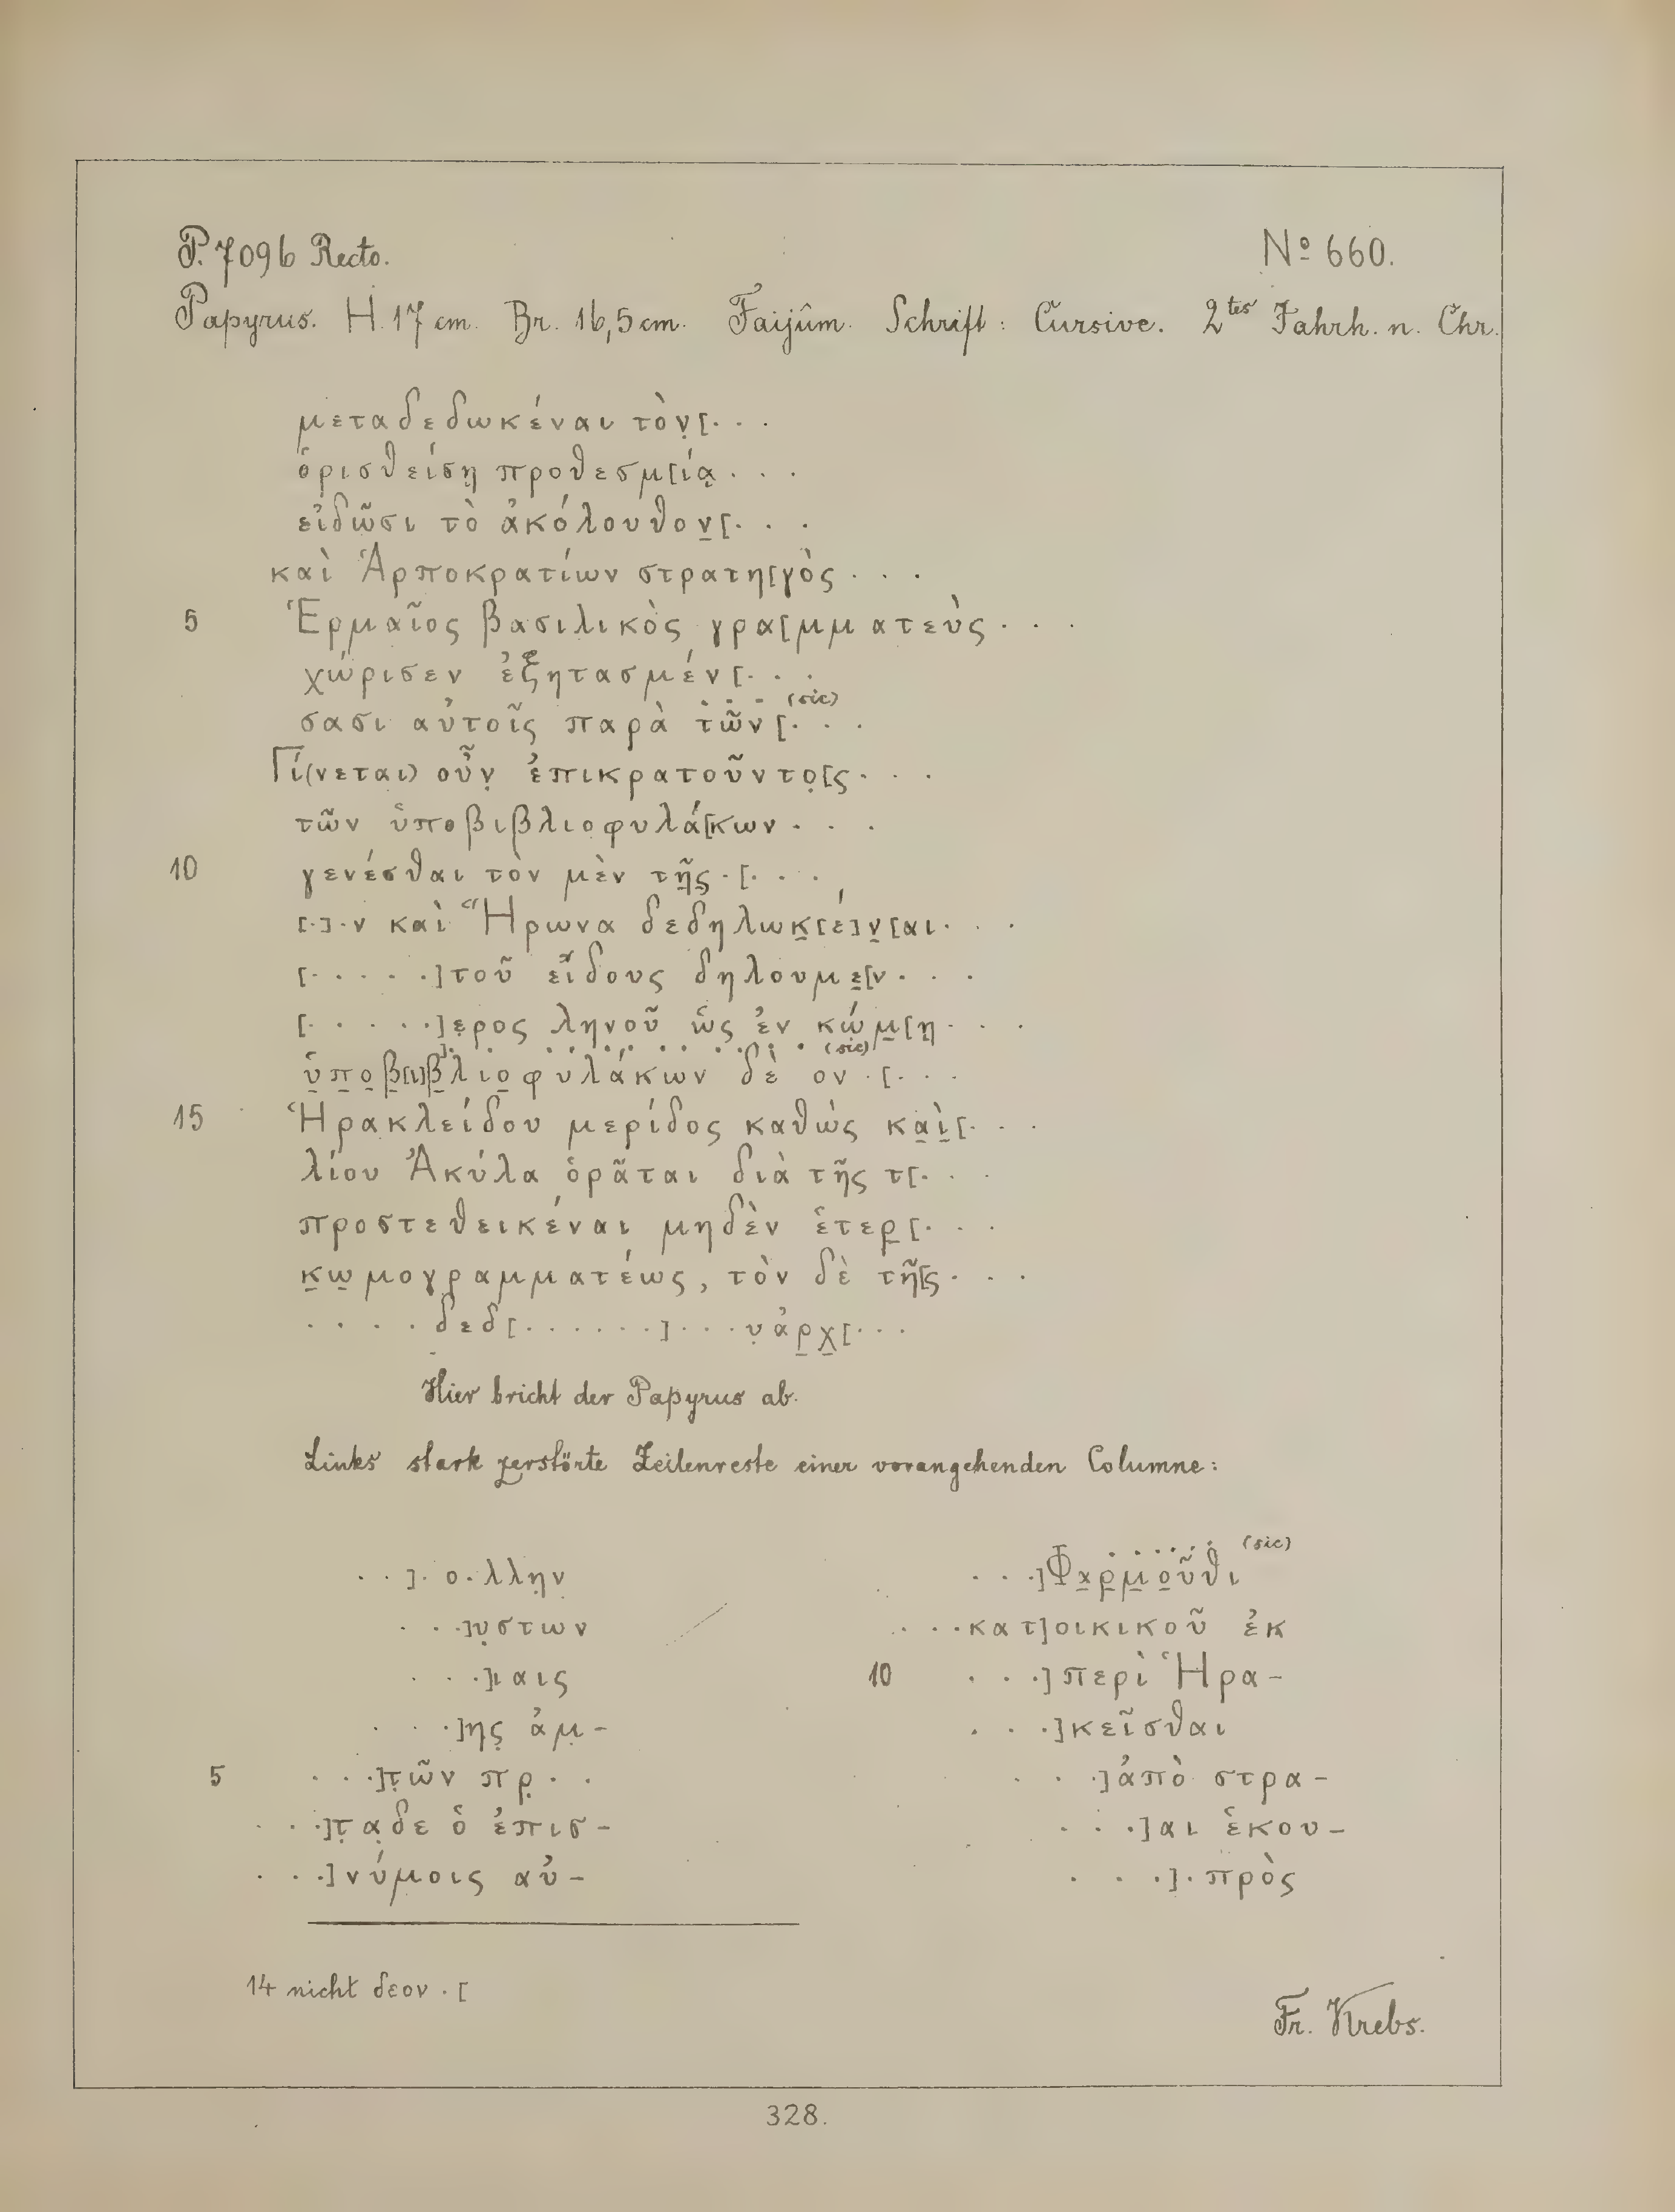 P. 7096 Recto.
Nº 660.
Papyrus. H. 17 cm. Br. 16,5 cm. Faijûm. Schrift: Cursive. 2tes Jahrh. n. Chr.
μεταδεδωκέναι τὸν̣[. . .
ὁρισθείσῃ προθεσμ[ίᾳ . . .
εἰδῶσι τὸ ἀκόλουθον̣[. . .
καὶ Ἁρποκρατίων στρατη[γὸς . . .
5 Ἑρμαῖος βασιλικὸς γρα[μματεὺς . . .
χώρισεν ἐξητασμέν[. . .
σασι αὐτοῖς παρὰ τῶν (sic) [. . .
Γί(νεται) οὖν̣ ἐπικρατοῦντο̣[ς . . .
τῶν ὑποβιβλιοφυλά[κων . . .
10 γενέσθαι τὸν μὲν τῆ̣ς̣ . [. . .
[.] . ν καὶ Ἥρωνα δεδηλωκ̣[έ]ν̣[αι . . .
[. . . . .]τοῦ εἴδους δηλουμε̣[ν . . .
[. . . . .]ε̣ρος ληνοῦ ὡς ἐν κώμ̣[ῃ . . .
ὑ̣π̣ο̣β̣[ι]β̣λιο̣φυλάκων δὲ (sic) ον . [. . .
15 Ἡρακλείδου μερίδος καθὼς κα̣ὶ̣[. . .
λίου Ἀκύλα ὁρᾶται διὰ τῆς τ[. . .
προστεθεικέναι μηδὲν ἑτερ̣[. . .
κ̣ω̣μογραμματέως, τὸν δὲ τῆ[ς . . .
. . . . δεδ[. . . . . .] . . . υ̣ἀρ̣χ̣[. . .
Hier bricht der Papyrus ab.
Links stark zerstörte Zeilenreste einer vorangehenden Columne:
. . ]. ο . λλη̣ν
. . .]υ̣στων
. . .]ι̣αις
. . .]ης̣ ἀμ̣-
5 . . .]τ̣ῶν πρ̣ . .
. . .]τ̣α̣δε ὁ ἐπισ-
. . .]νύμοις αὐ-
. . .]Φα̣ρ̣μ̣ο̣ῦθι (sic)
. . .κατ]οικικοῦ ἐκ
10 . . .]περὶ Ἡρα-
. . .]κεῖσθαι
. . .]ἀπὸ στρα-
. . .]αι ἑκου-
. . .]. πρὸς
14 nicht δεον . [
Fr. Krebs.
328.